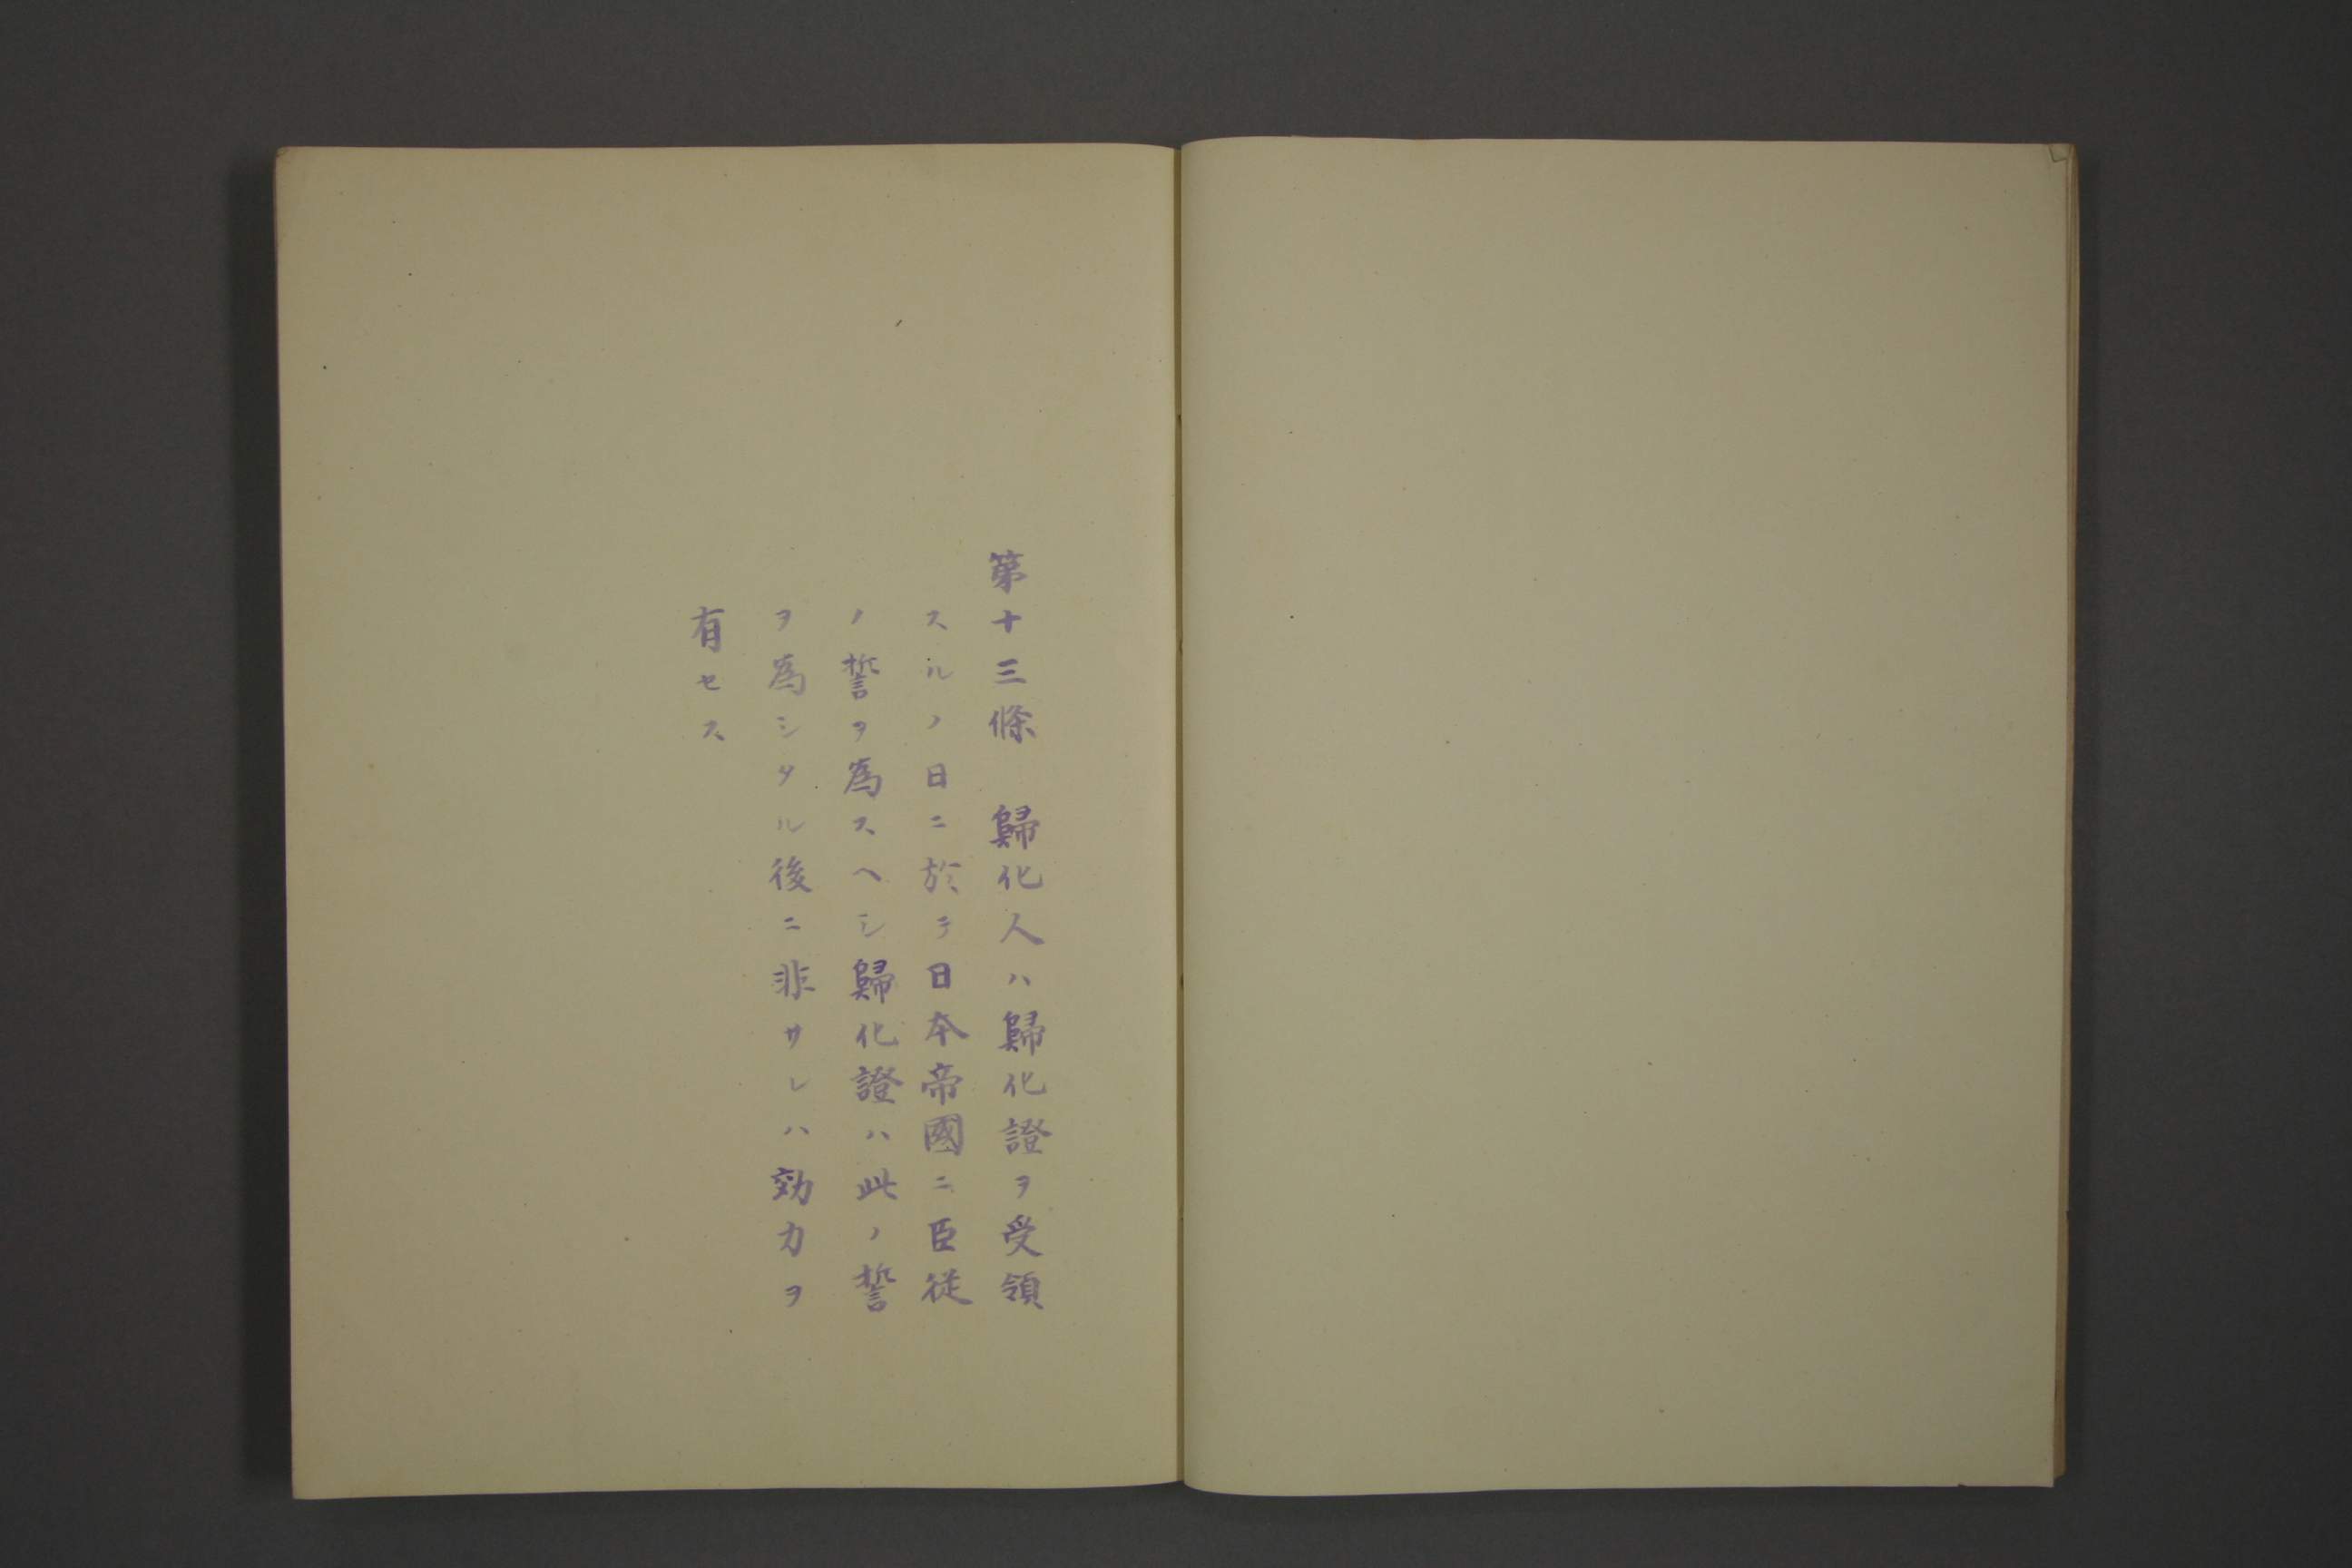 第十三條　歸化人ハ歸化證ヲ受領
スルノ日ニ於テ日本帝國ニ臣從
ノ誓ヲ爲スヘシ歸化證ハ此ノ誓
ヲ爲シタル後ニ非サレハ効力ヲ
有セス